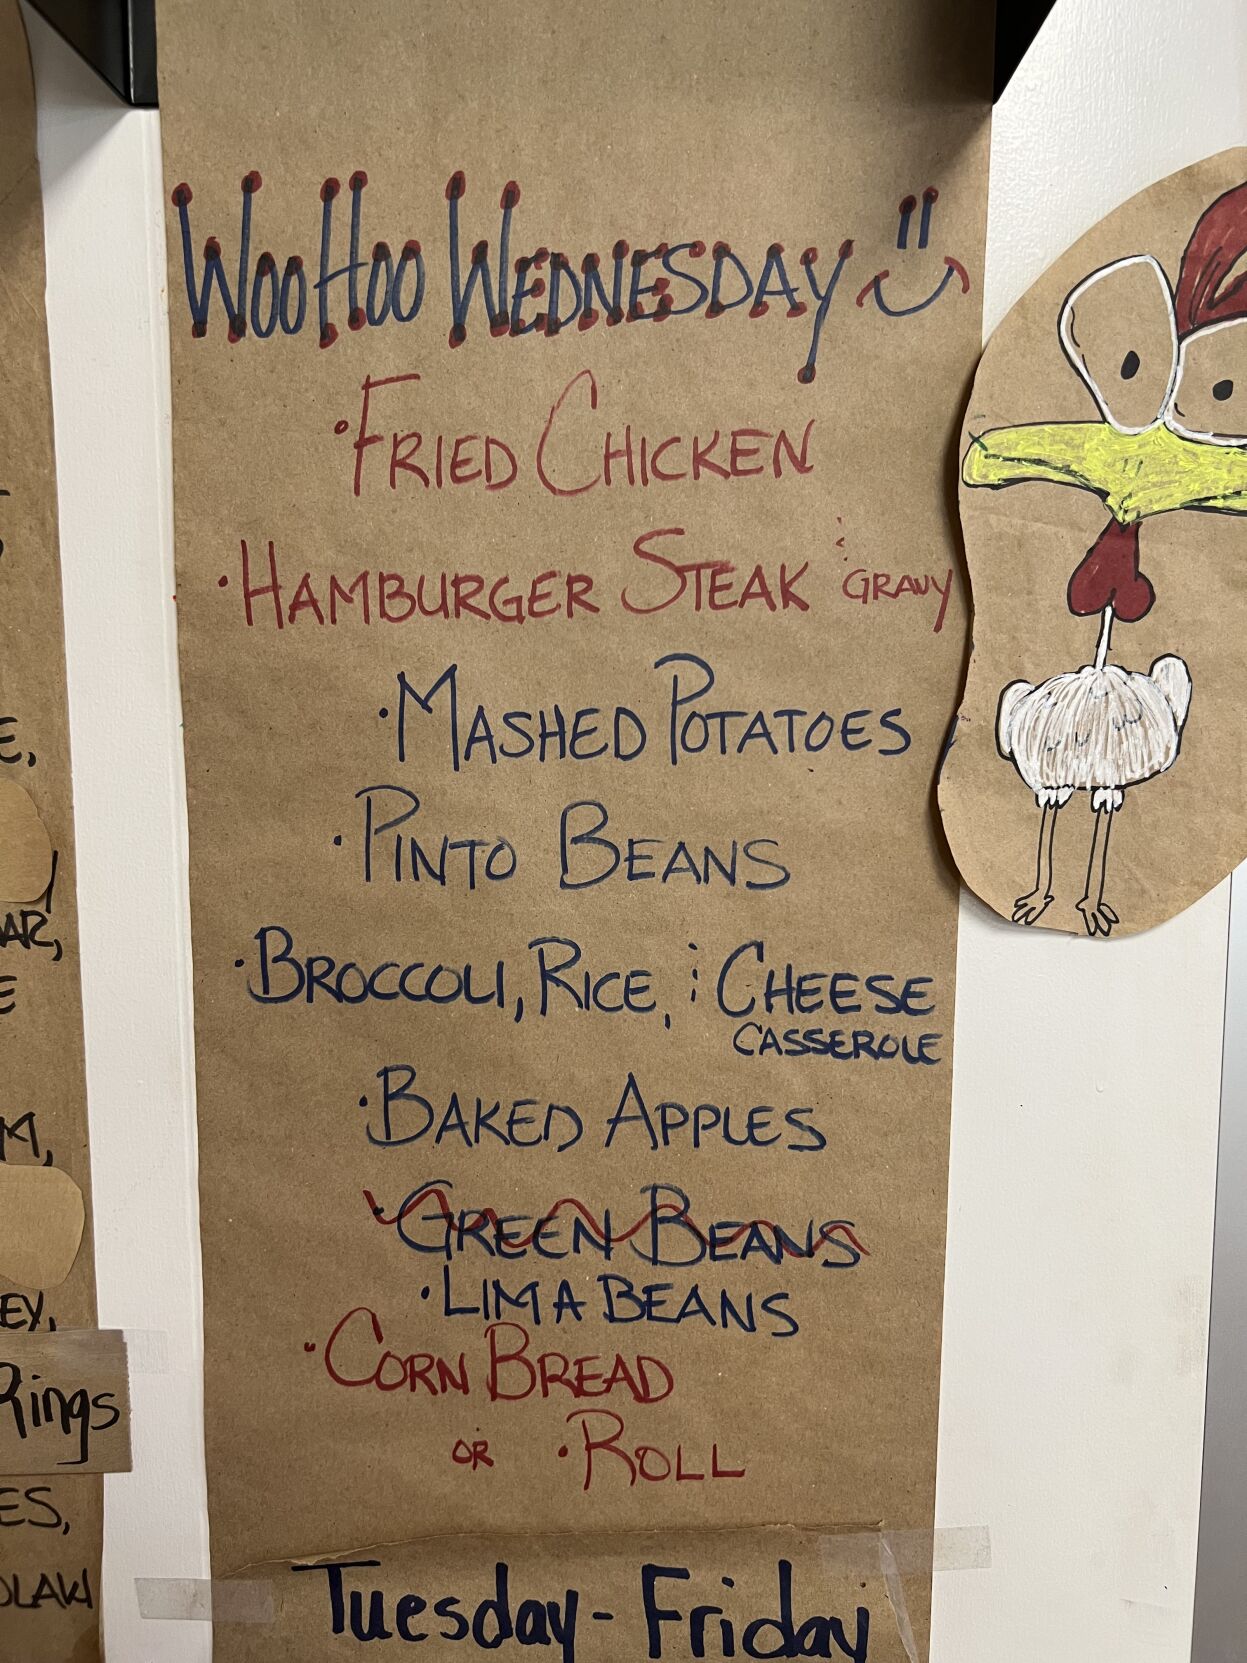 WOOHOO WEDNESDAY
· FRIED CHICKEN
· HAMBURGER STEAK & GRAVY
· MASHED POTATOES
· PINTO BEANS
· BROCCOLI, RICE, & CHEESE
CASSEROLE
· BAKED APPLES
· GREEN BEANS
· LIMA BEANS
· CORN BREAD
OR · ROLL
Tuesday - Friday
Rings